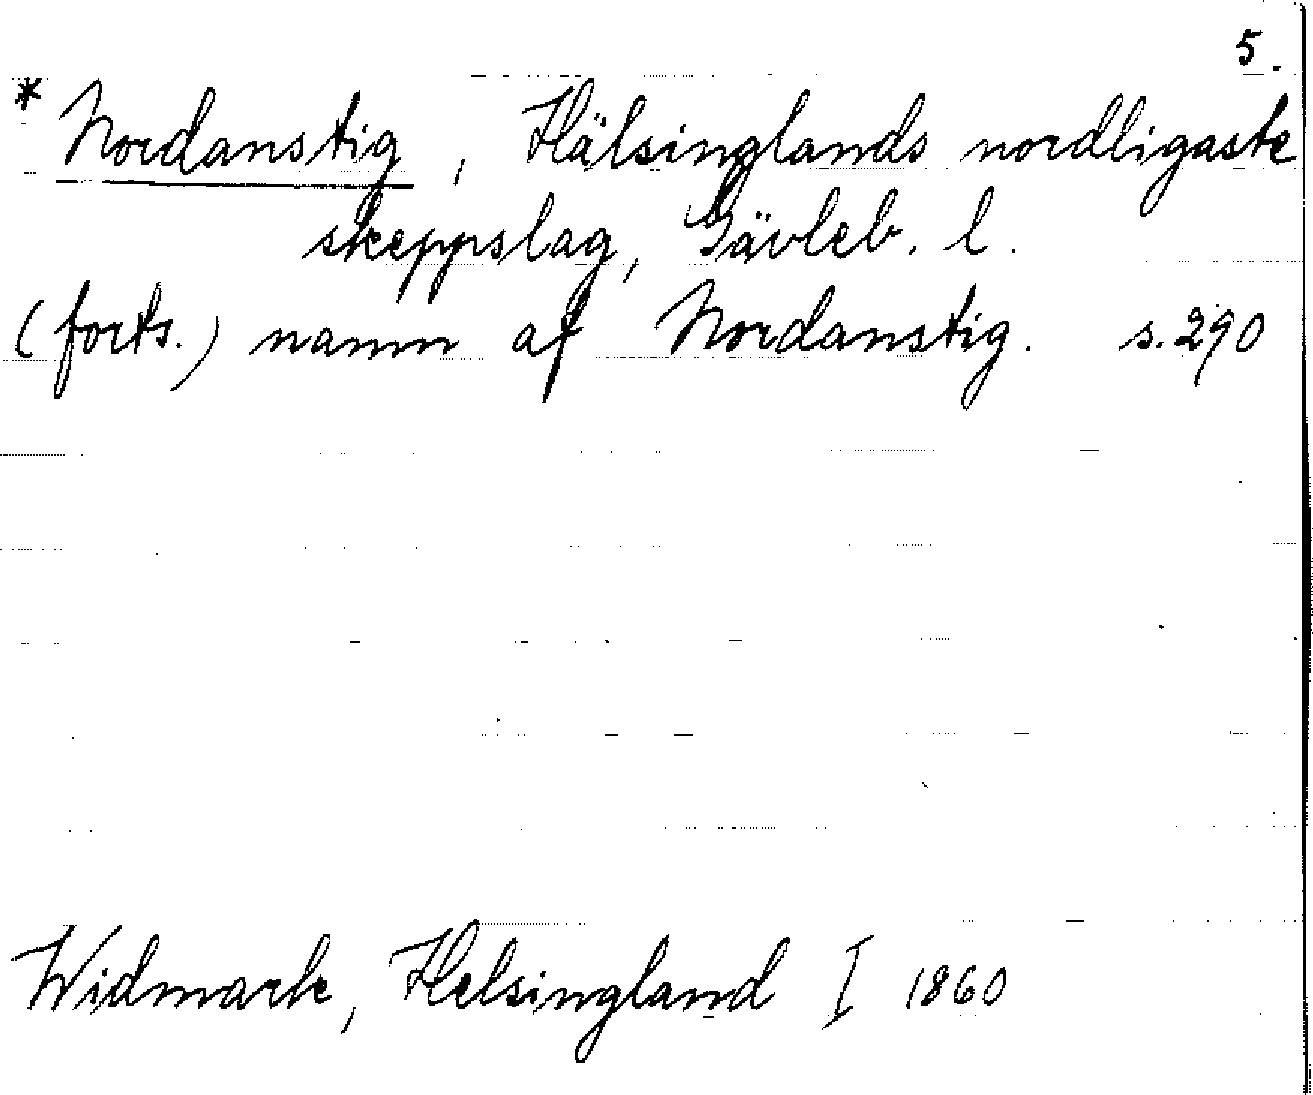 5.
* Nordanstig, Hälsinglands nordligaste
skeppslag, Gävleb. l.
(forts.) namn af Nordanstig. s. 290
Widmark, Helsingland I 1860